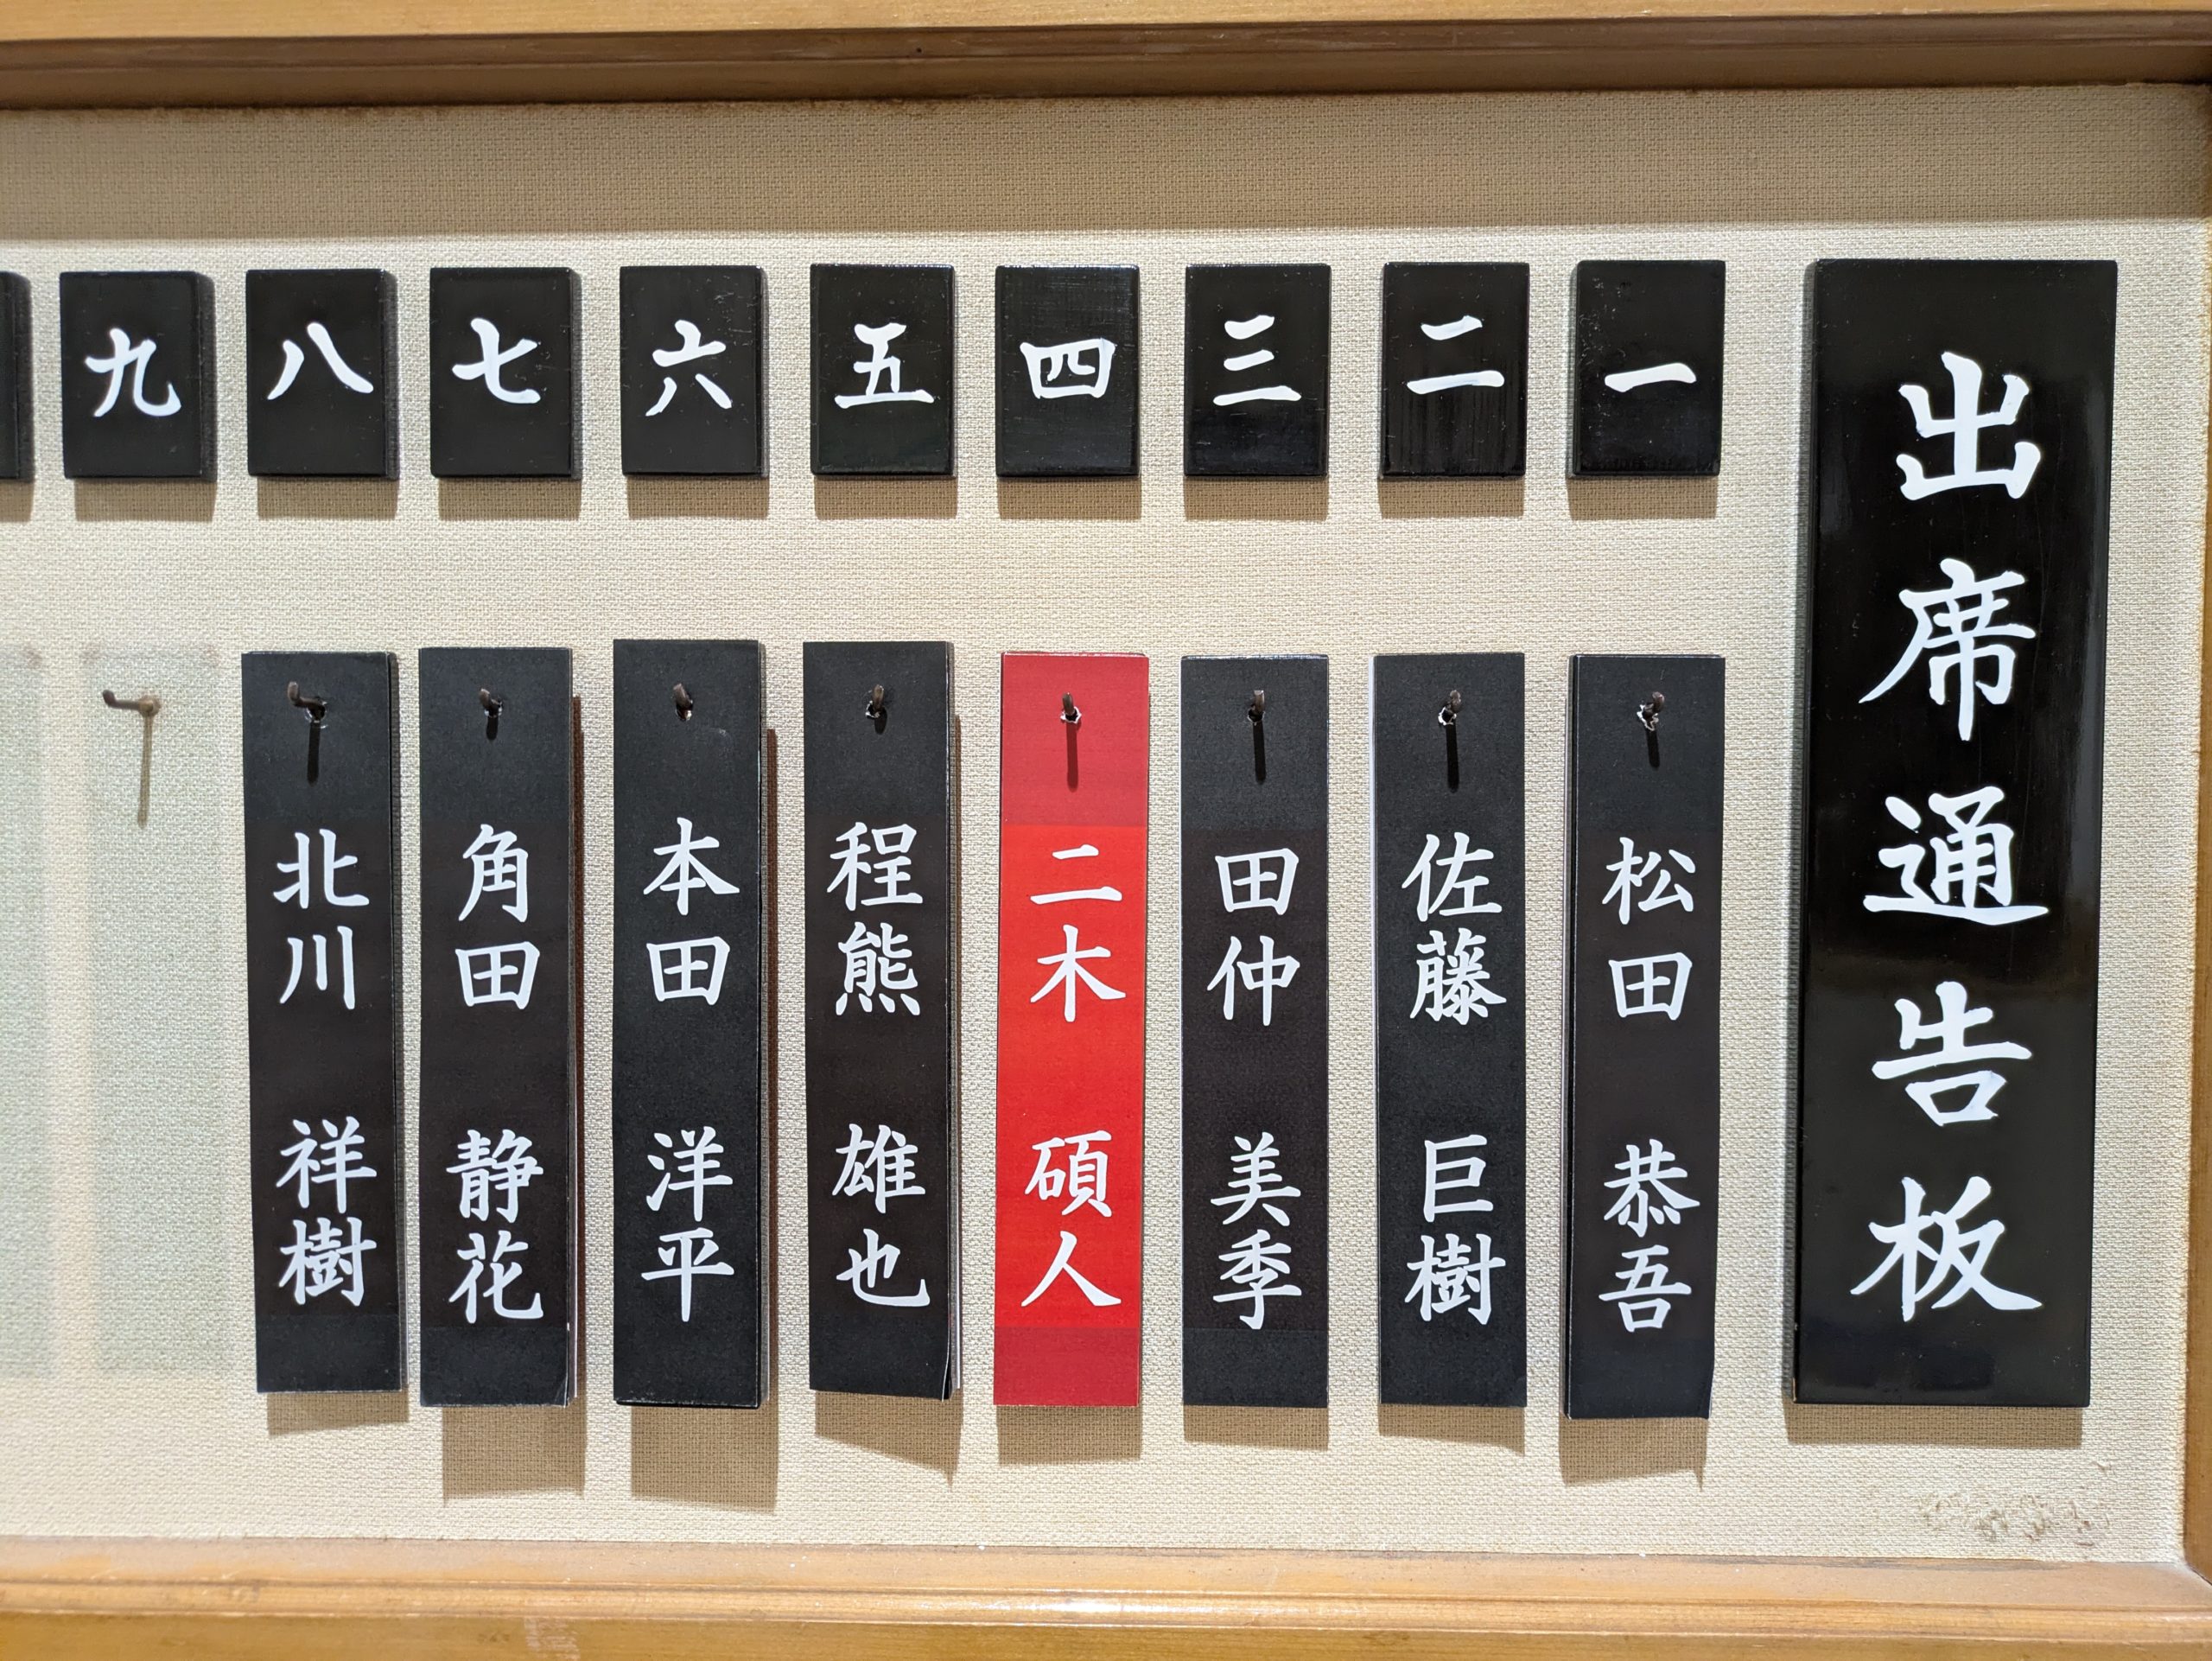 出席通告板
一
二
三
四
五
六
七
八
九
松田 恭吾
佐藤 巨樹
田仲 美季
二木 碩人
程熊 雄也
本田 洋平
角田 静花
北川 祥樹